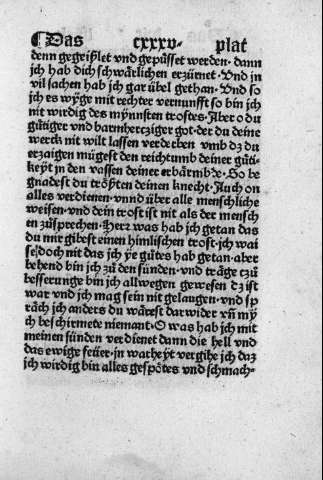 ¶Das cxxxv· plat
denn gegeißlet vnd gepüsset werden· dann
jch hab dich schwärlichen erzürnet· Vnd jn
vil sachen hab jch gar übel gethan· Vnd so
jch es wÿge mit rechter vernunfft so bin jch
nit wirdig des mÿnnsten trostes· Aber o du
gütiger vnd barmhertziger got· der du deine
werck nit wilt lassen verderben vmb dz du
erzaigen mügest den reichtumb deiner güti-
keÿt jn den vassen deiner erbärmbde· So be
gnadest du trösten deinen knecht· Auch on
alles verdienen· vnnd über alle menschliche
weisen· vnd dein trost ist nit als der mensch
en zůsprechen· Herz was hab jch getan das
du mir gibest einen himlischen trost· jch wai
se doch nit das jch ÿe gůtes hab getan· aber
behend bin jch zů den sünden· vnd träge czů
besserunge bin jch allwegen gewesen dz ist
war vnd jch mag sein nit gelaugen· vnd sp
räch jch anders du wärest dar wider vñ mÿ
ch beschirmete niemant· O was hab jch mit
meinen sünden verdienet dann die hell vnd
das ewige feüer· jn warheÿt vergihe jch daz
jch wirdig bin alles gespötes vnd schmach-